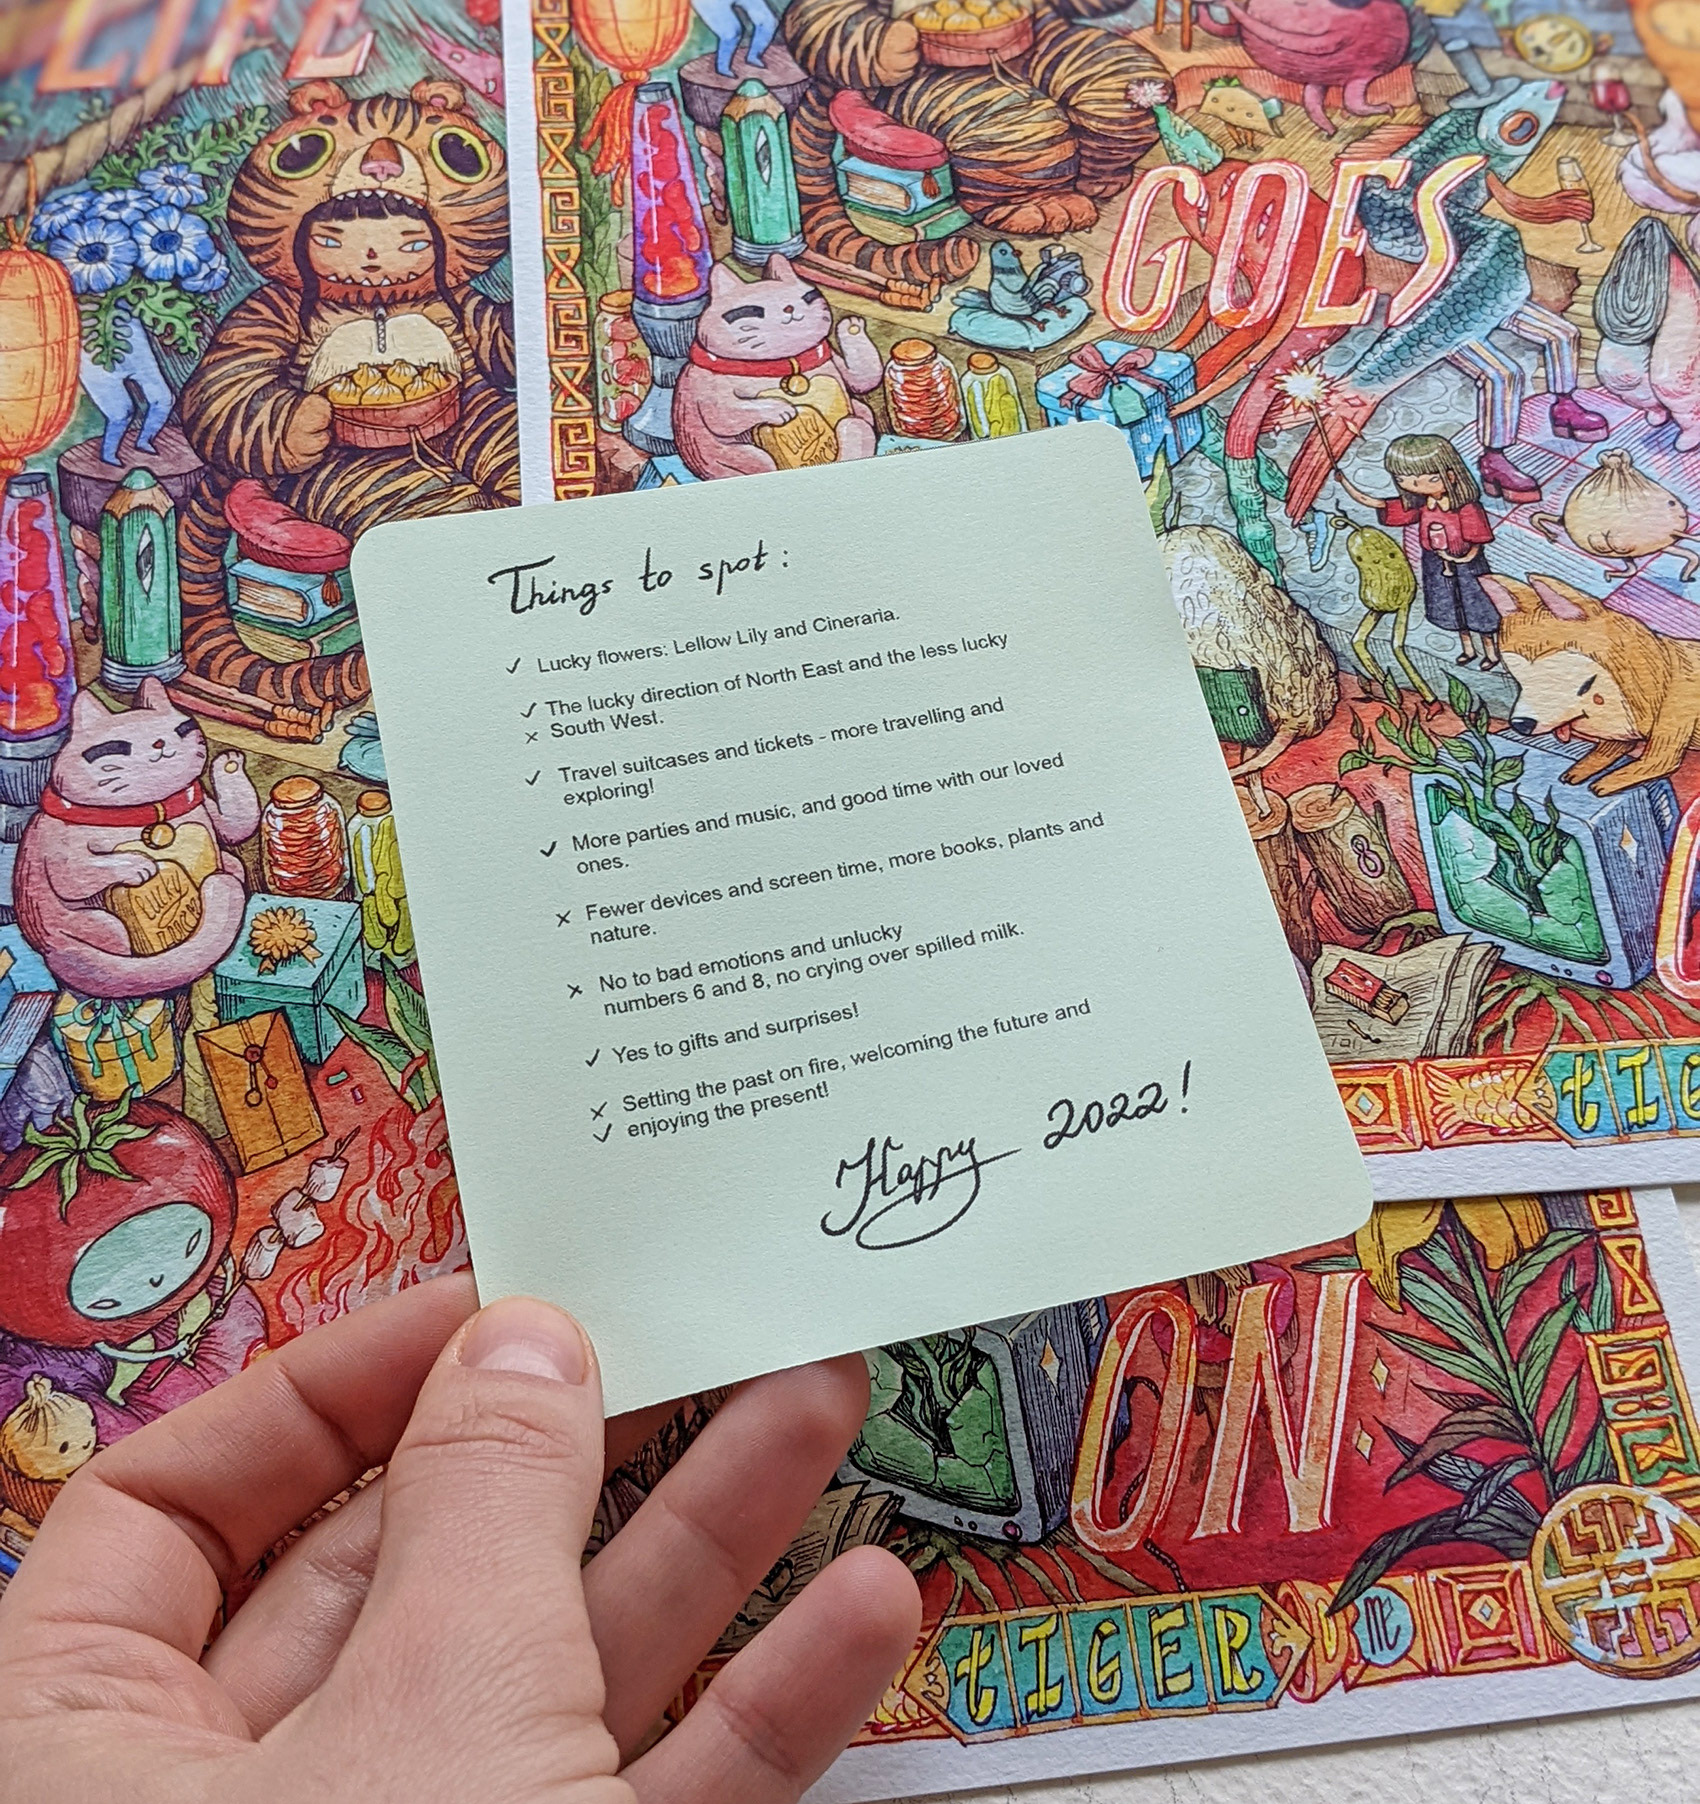 LIFE
GOES
lucky
Things to spot:
✓ Lucky flowers: Lellow Lily and Cineraria.
✓ The lucky direction of North East and the less lucky
× South West.
✓ Travel suitcases and tickets - more travelling and
exploring!
✓ More parties and music, and good time with our loved
ones.
× Fewer devices and screen time, more books, plants and
nature.
× No to bad emotions and unlucky
numbers 6 and 8, no crying over spilled milk.
✓ Yes to gifts and surprises!
× Setting the past on fire, welcoming the future and
✓ enjoying the present!
Happy 2022!
lucky
8
TIG
ON
tIGER